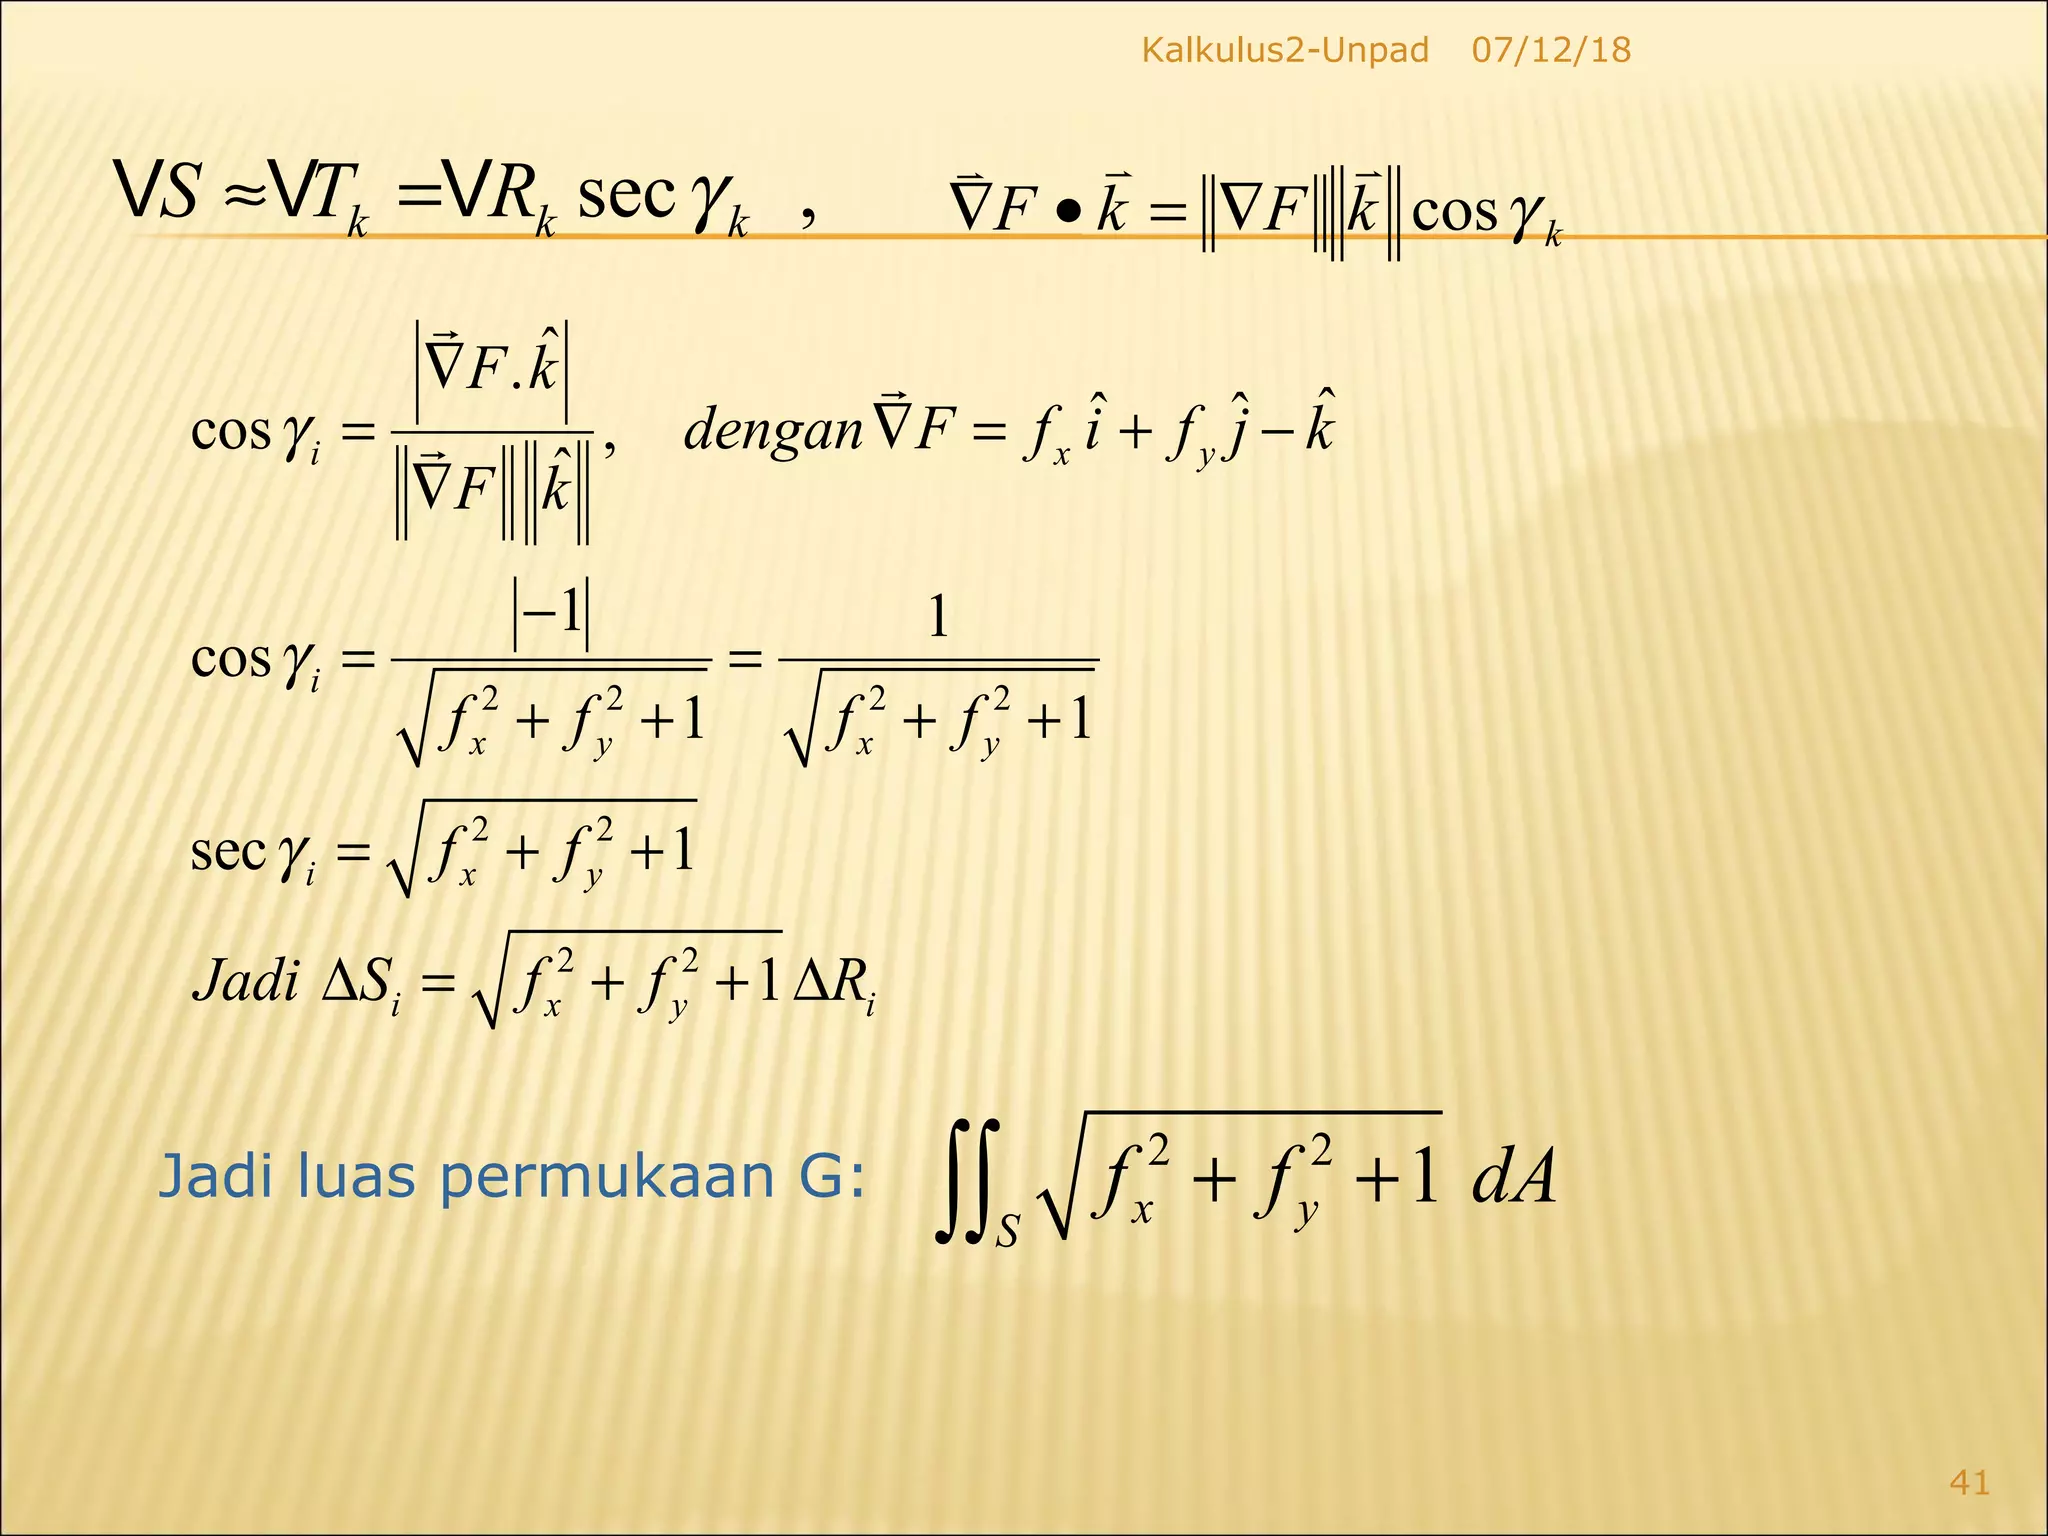 Kalkulus2-Unpad 07/12/18
VS ≈VT_k =VR_k sec γ_k , ∇⃗F • k⃗ = ‖∇⃗F‖‖k⃗‖ cos γ_k
cos γ_i = |∇⃗F.k̂| / (‖∇⃗F‖‖k̂‖) , dengan ∇⃗F = f_x î + f_y ĵ − k̂
cos γ_i = |−1| / √(f_x² + f_y² + 1) = 1 / √(f_x² + f_y² + 1)
sec γ_i = √(f_x² + f_y² + 1)
Jadi ΔS_i = √(f_x² + f_y² + 1) ΔR_i
Jadi luas permukaan G: ∬_S √(f_x² + f_y² + 1) dA
41